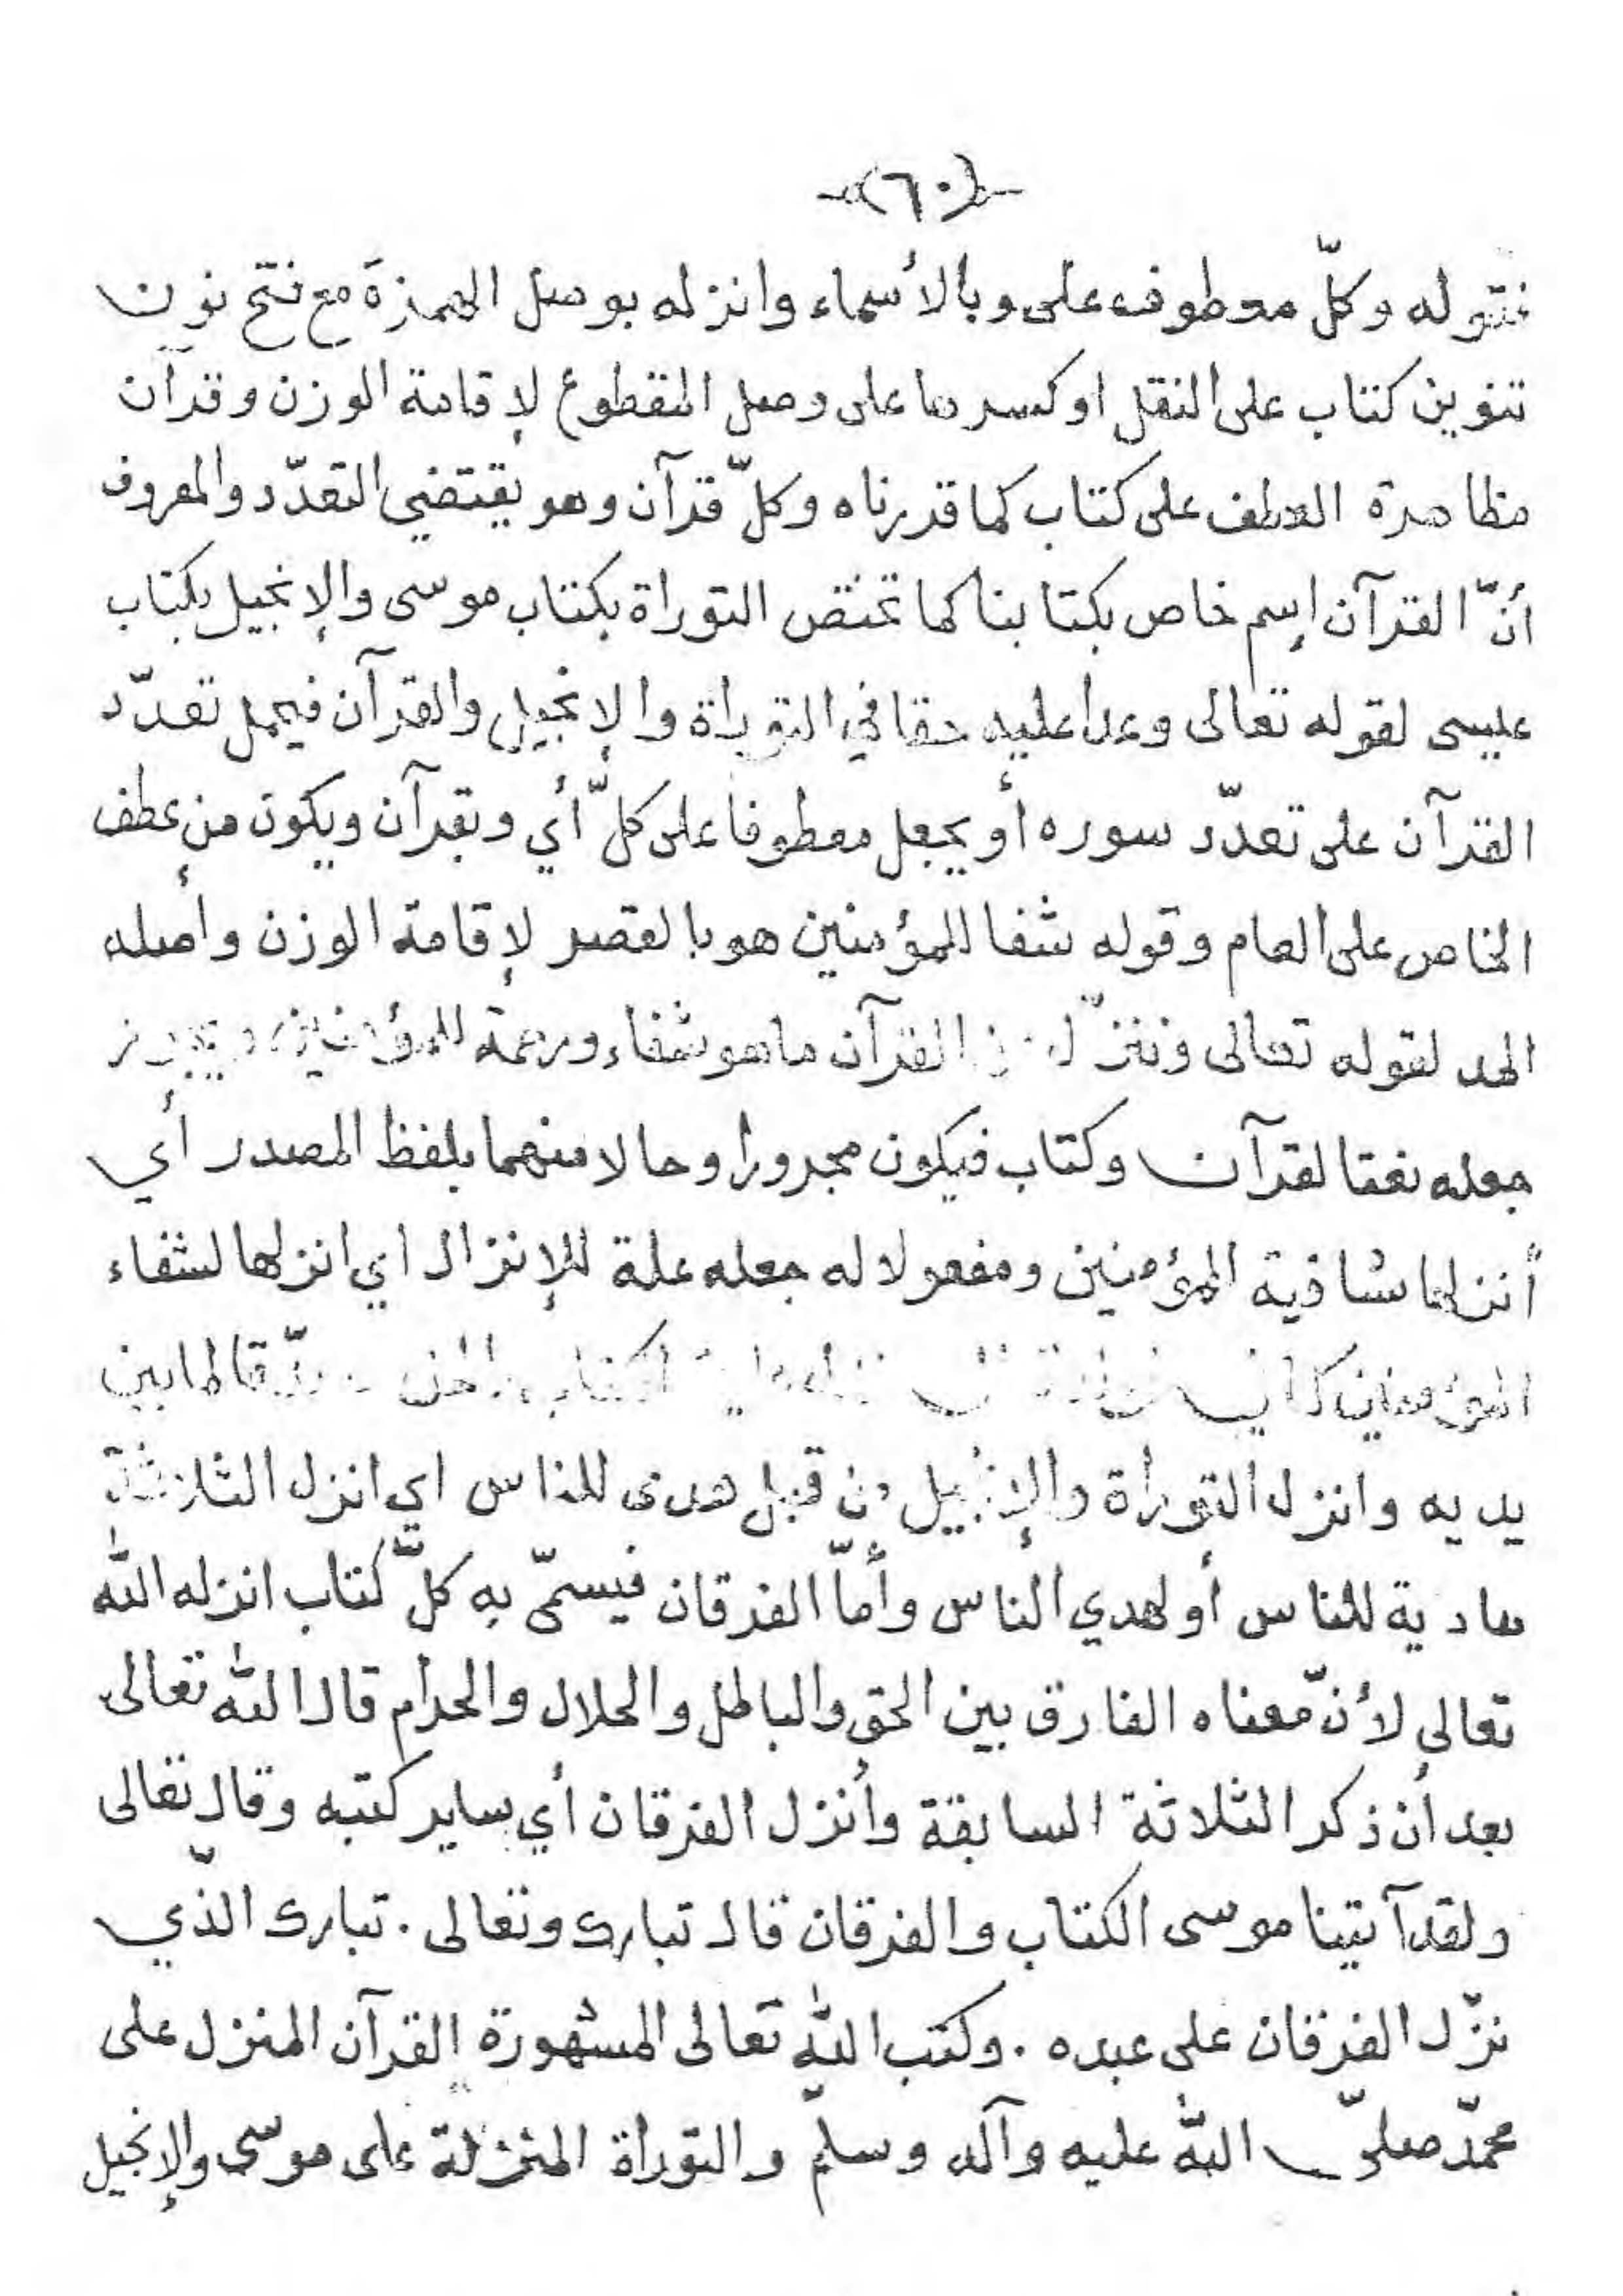 -(٦٠)-
فقوله وكلّ معطوف على وبالأسماء وانزله بوصل الهمزة مع فتح نون
تنوين كتاب على النقل اوكسرها على وصل المقطوع لإقامة الوزن وقرآن
مظاهرة العطف على كتاب كما قدرناه وكلّ قرآن وهو يقتضي التعدّد والمعروف
أنّ القرآن إسم خاص بكتابنا كما تختص التوراة بكتاب موسى والإنجيل بكتاب
عيسى لقوله تعالى وعدا عليه حقا في التوراة والإنجيل والقرآن فيحمل تعدّد
القرآن على تعدّد سوره أو يجعل معطوفا على كلّ أي وبقرآن ويكون من عطف
الخاص على العام وقوله شفا المؤمنين هو بالقصر لإقامة الوزن وأصله
المد لقوله تعالى وننزّل من القرآن ما هو شفاء ورحمة للمؤمنين ويجوز
جعله نعتا لقرآن وكتاب فيكون مجرورا وحالا منهما بلفظ المصدر أي
أنزلهما شافية المؤمنين ومفعولا له جعله علة للإنزال اي انزلها لشفاء
المؤمنين الكتاب لما بين
يديه وانزل التوراة والإنجيل من قبل هدى للناس اي انزل الثلاثة
هادية للناس أو لهدي الناس وأمّا الفرقان فيسمّى به كلّ كتاب انزله الله
تعالى لأنّ معناه الفارق بين الحق والباطل والحلال والحرام قال الله تعالى
بعد أن ذكر الثلاثة السابقة وأنزل الفرقان أي ساير كتبه وقال تعالى
ولقد آتينا موسى الكتاب والفرقان قال تبارك وتعالى . تبارك الذّي
نزّل الفرقان على عبده . وكتب الله تعالى المشهورة القرآن المنزل على
محمّد صلىّ الله عليه وآله وسلمّ والتوراة المنزلة على موسى والإنجيل